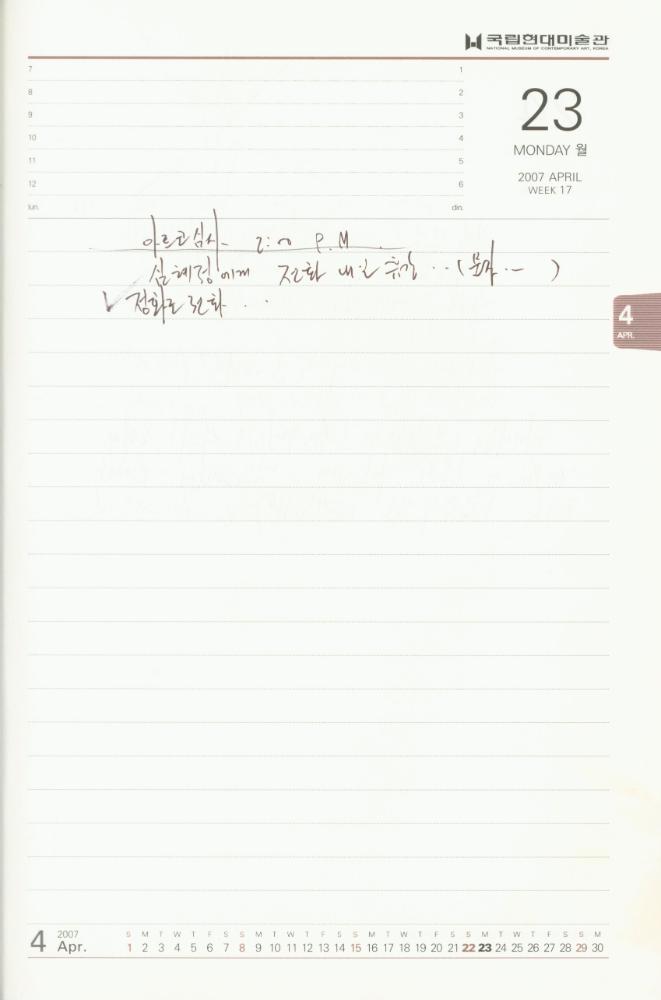 국립현대미술관
NATIONAL MUSEUM OF CONTEMPORARY ART, KOREA
7 1
8 2
9 3
10 4
11 5
12 6
lun. din.
23
MONDAY 월
2007 APRIL
WEEK 17
아르코심사 2:00 P.M
심혜정에게 전화 내일 휴강 ..(문자.. )
정화로 전화 ..
4
APR.
4 2007 Apr.
S M T W T F S S M T W T F S S M T W T F S S M T W T F S S M
1 2 3 4 5 6 7 8 9 10 11 12 13 14 15 16 17 18 19 20 21 22 23 24 25 26 27 28 29 30